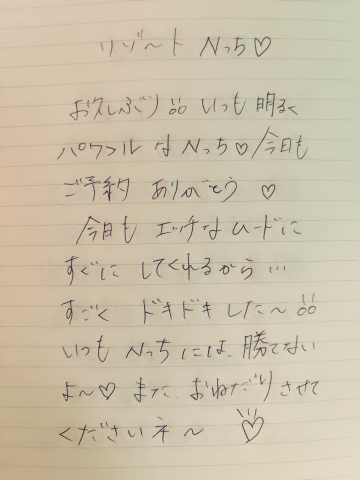 リゾート Nっち♡
お久しぶり!! いつも 明るく
パワフル な Nっち♡ 今日も
ご予約 ありがとう ♡
今日も エッチな ムードに
すぐに してくれるから…
すごく ドキドキ した〜!!
いつも Nっち には、勝てない
よ〜♡ また、おねだり させて
くださいネ〜 ♡